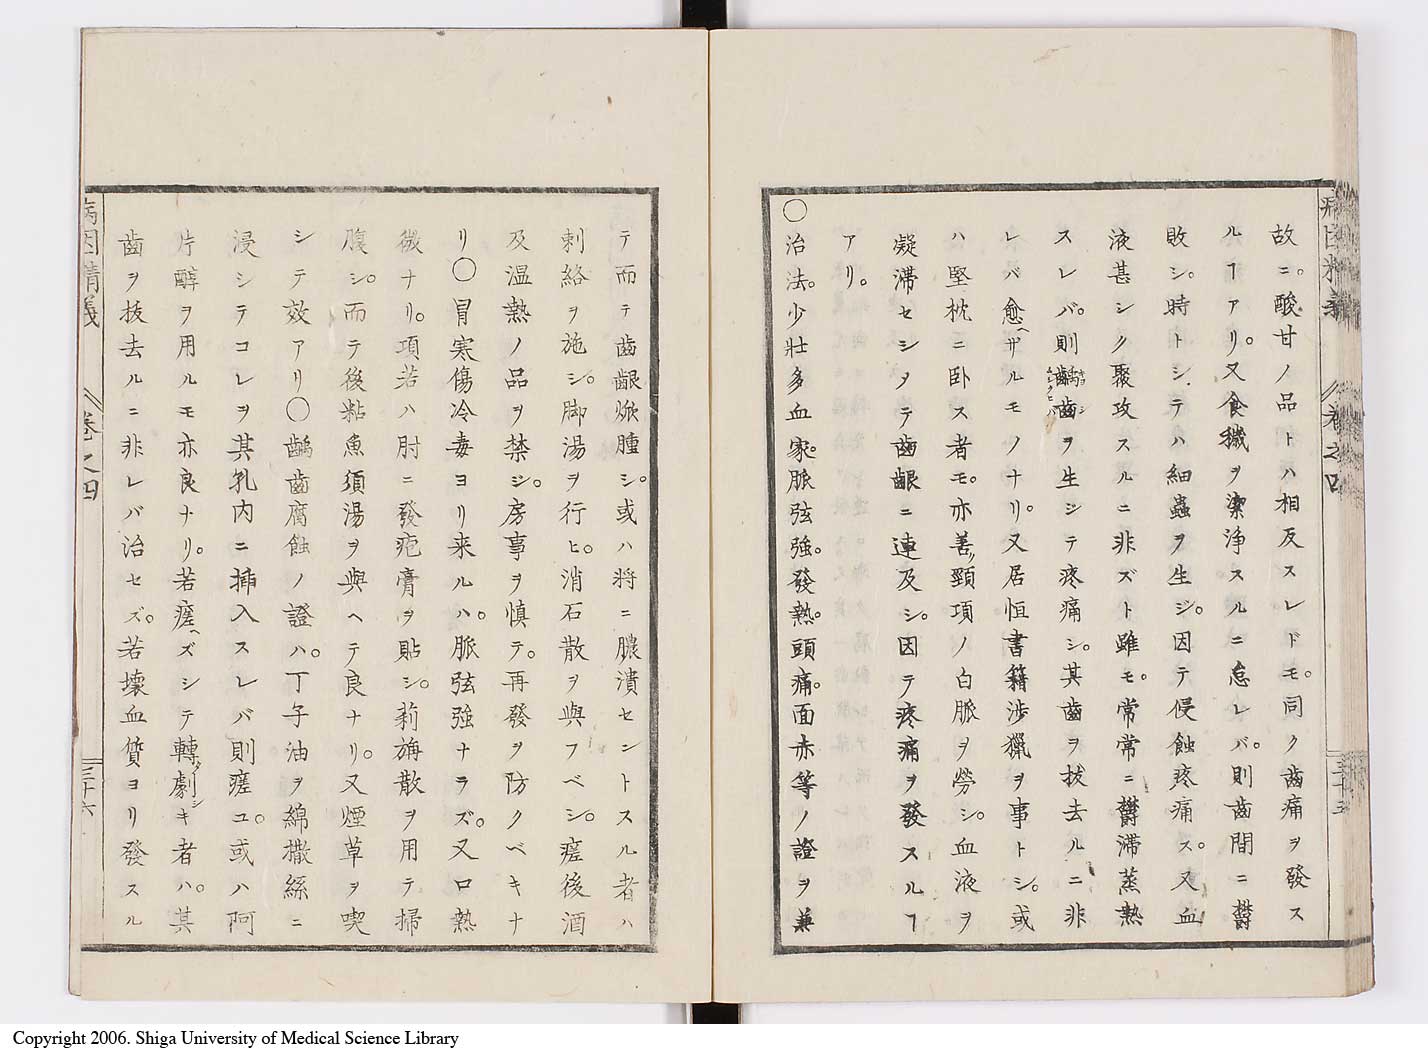 病因精義 巻之四 三十五
故ニ。酸甘ノ品トハ相反スレドモ。同ク歯痛ヲ發ス
ルヿアリ。又食穢ヲ潔浄スルニ怠レバ。則歯間ニ欝
敗シ。時トシテハ細蟲ヲ生ジ。因テ侵蝕疼痛ス。又血
液甚シク聚攻スルニ非ズト雖モ。常常ニ欝滞蒸熱
スレバ。則齲歯ヲ生シテ疼痛シ。其歯ヲ拔去ルニ非
レバ愈ヘザルモノナリ。又居恒書籍渉獵ヲ事トシ。或
ハ堅枕ニ卧ス者モ。亦善ク頸項ノ白脈ヲ勞シ。血液ヲ
凝滞セシメテ歯齦ニ連及シ。因テ疼痛ヲ發スルヿ
アリ。
○治法。少壮多血家。脈弦強。發熱。頭痛。面赤等ノ證ヲ兼
テ而テ歯齦焮腫シ。或ハ將ニ膿潰セントスル者ハ
刺絡ヲ施シ。脚湯ヲ行ヒ。消石散ヲ與フベシ。瘥後酒
及温熱ノ品ヲ禁シ。房事ヲ慎テ。再發ヲ防クベキナ
リ○冒寒傷冷毒ヨリ来ルハ。脈弦強ナラズ。又口熱
微ナリ。項若ハ肘ニ發疱膏ヲ貼シ。莉旃散ヲ用テ掃
腹シ。而テ後粘魚須湯ヲ與ヘテ良ナリ。又煙草ヲ喫
シテ效アリ○齲歯腐蝕ノ證ハ。丁子油ヲ綿撒絲ニ
浸シテコレヲ其乳内ニ挿入スレバ則瘥ユ。或ハ阿
片醇ヲ用ルモ亦良ナリ。若瘥ヘズシテ轉劇シキ者ハ。其
歯ヲ拔去ルニ非レバ治セズ。若壊血質ヨリ發スル
病因精義 巻之四 三十六
Copyright 2006. Shiga University of Medical Science Library